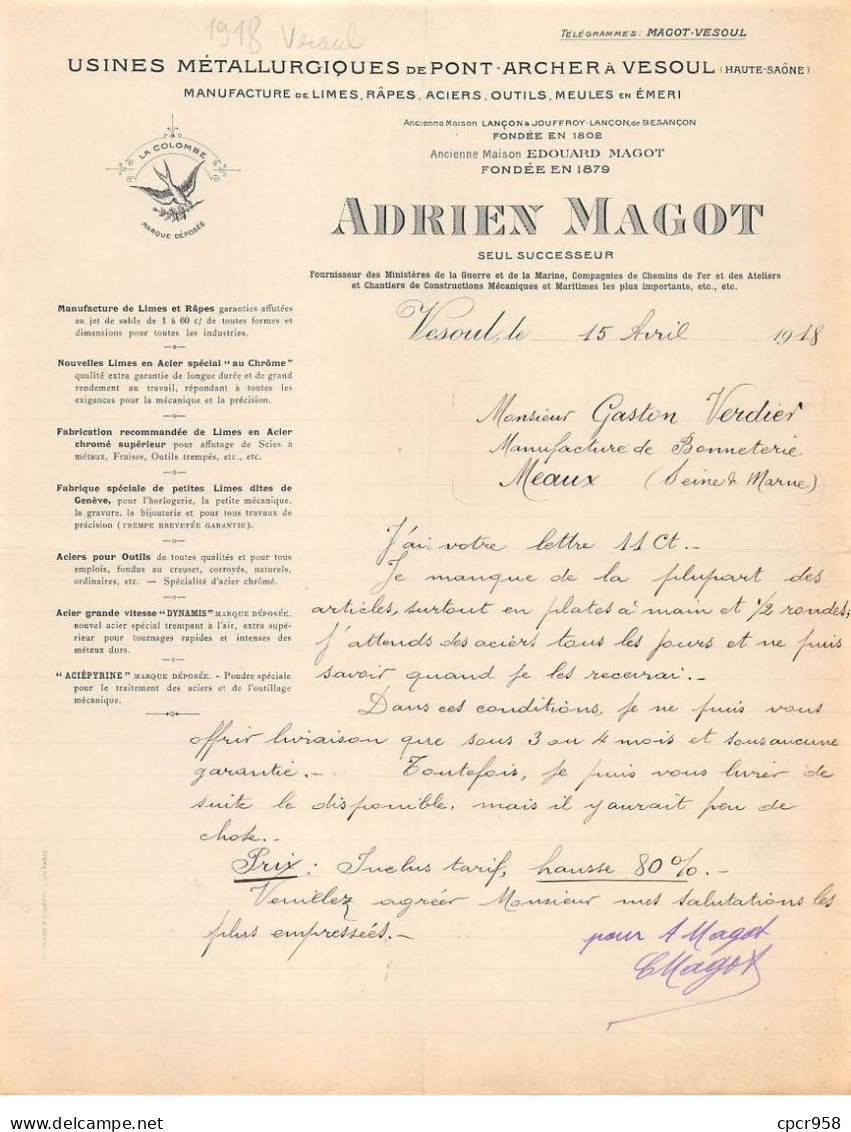 1918 Vesoul
TÉLÉGRAMMES: MAGOT-VESOUL
USINES MÉTALLURGIQUES DE PONT-ARCHER À VESOUL (HAUTE-SAÔNE)
MANUFACTURE DE LIMES, RÂPES, ACIERS, OUTILS, MEULES EN ÉMERI
Ancienne Maison LANÇON & JOUFFROY-LANÇON, de BESANÇON
FONDÉE EN 1802
Ancienne Maison EDOUARD MAGOT
FONDÉE EN 1879
LA COLOMBE
MARQUE DÉPOSÉE
ADRIEN MAGOT
SEUL SUCCESSEUR
Fournisseur des Ministères de la Guerre et de la Marine, Compagnies de Chemins de Fer et des Ateliers
et Chantiers de Constructions Mécaniques et Maritimes les plus importants, etc., etc.
Manufacture de Limes et Râpes garanties affutées
au jet de sable de 1 à 60 c/ de toutes formes et
dimensions pour toutes les industries.
Nouvelles Limes en Acier spécial "au Chrôme"
qualité extra garantie de longue durée et de grand
rendement au travail, répondant à toutes les
exigences pour la mécanique et la précision.
Fabrication recommandée de Limes en Acier
chromé supérieur pour affutage de Scies à
métaux, Fraises, Outils trempés, etc., etc.
Fabrique spéciale de petites Limes dites de
Genève, pour l'horlogerie, la petite mécanique,
la gravure, la bijouterie et pour tous travaux de
précision (TREMPE BREVETÉE GARANTIE).
Aciers pour Outils de toutes qualités et pour tous
emplois, fondus au creuset, corroyés, naturels,
ordinaires, etc. — Spécialité d'acier chrômé.
Acier grande vitesse "DYNAMIS" MARQUE DÉPOSÉE,
nouvel acier spécial trempant à l'air, extra supé-
rieur pour tournages rapides et intenses des
métaux durs.
"ACIÉPYRINE" MARQUE DÉPOSÉE. - Poudre spéciale
pour le traitement des aciers et de l'outillage
mécanique.
Vesoul, le 15 Avril 1918
Monsieur Gaston Verdier
Manufacture de Bonneterie
Meaux (Seine & Marne)
J'ai votre lettre 11 Ct.-
Je manque de la plupart des
articles, surtout en plates à main et 1/2 rondes;
j'attends des aciers tous les jours et ne puis
savoir quand je les recevrai.-
Dans ces conditions, je ne puis vous
offrir livraison que sous 3 ou 4 mois et sous aucune
garantie.- Toutefois, je puis vous livrer de
suite le disponible, mais il y aurait peu de
chose.-
Prix : Inclus tarif, hausse 80%.-
Veuillez agréer Monsieur mes salutations les
plus empressées.-
pour A Magot
Magot
cpcr958